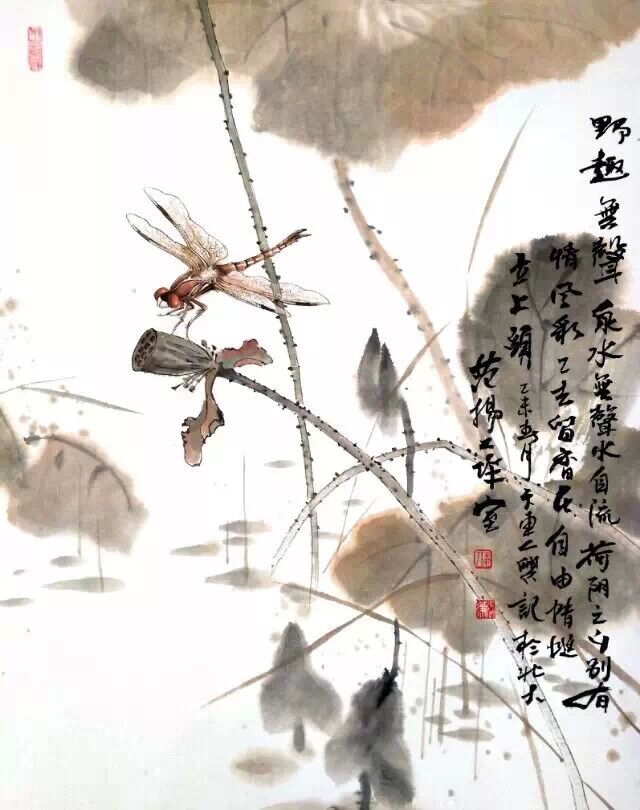 野趣無聲泉水無聲水自流荷阴之下别有
情风彩已去留香在自由蜻蜓
立上頭乙未月記於北大
范揚工作室